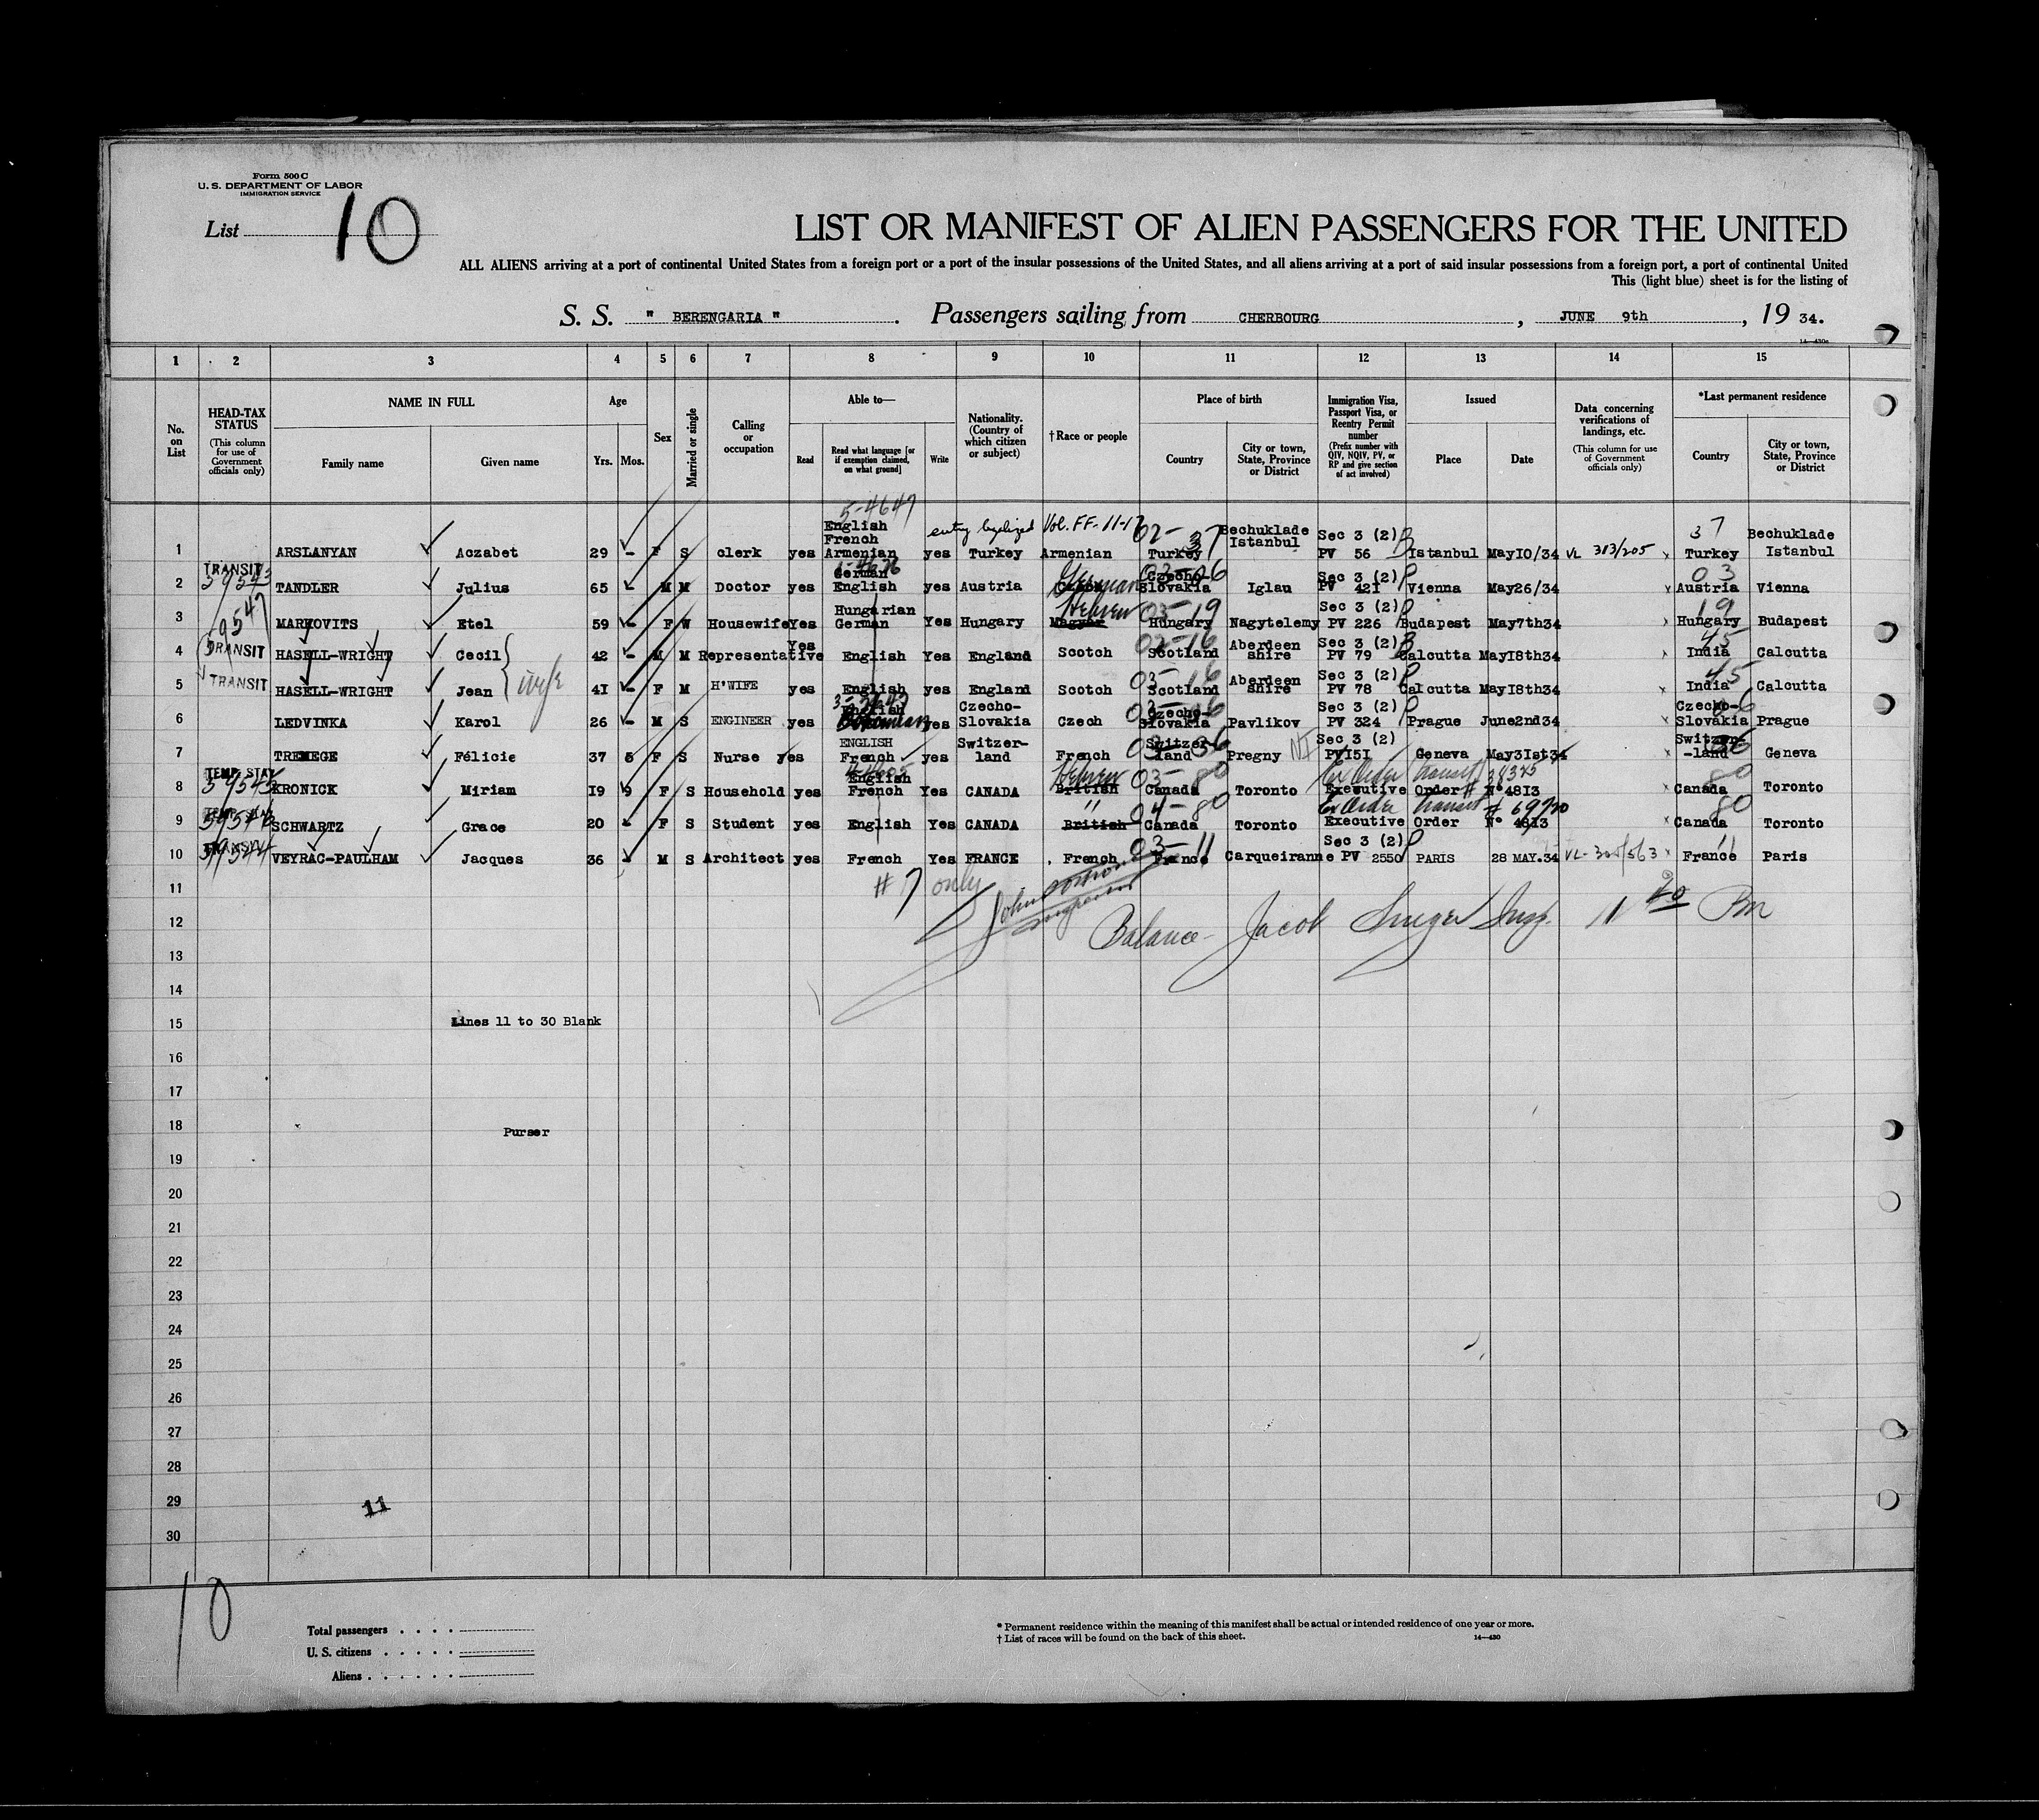 Form 500 C
U. S. DEPARTMENT OF LABOR
IMMIGRATION SERVICE
List 10
LIST OR MANIFEST OF ALIEN PASSENGERS FOR THE UNITED
ALL ALIENS arriving at a port of continental United States from a foreign port or a port of the insular possessions of the United States, and all aliens arriving at a port of said insular possessions from a foreign port, a port of continental United
This (light blue) sheet is for the listing of
S. S. " BERENGARIA " . Passengers sailing from CHERBOURG , JUNE 9th , 19 34.
14—430c
1 2 3 4 5 6 7 8 9 10 11 12 13 14 15
No. on List
HEAD-TAX STATUS (This column for use of Government officials only)
NAME IN FULL Family name Given name
Age Yrs. Mos.
Sex
Married or single
Calling or occupation
Able to— Read Read what language [or if exemption claimed, on what ground] Write
Nationality. (Country of which citizen or subject)
†Race or people
Place of birth Country City or town, State, Province or District
Immigration Visa, Passport Visa, or Reentry Permit number (Prefix number with QIV, NQIV, PV, or RP and give section of act involved)
Issued Place Date
Data concerning verifications of landings, etc. (This column for use of Government officials only)
*Last permanent residence Country City or town, State, Province or District
5-4647
English entry legalized Vol. FF. 11-17 02- 37 Bechuklade Sec 3 (2) 37 Bechuklade
French Istanbul
1 ARSLANYAN Aczabet 29 - F S clerk yes Armenian yes Turkey Armenian Turkey PV 56 Istanbul May10/34 VL 313/205 x Turkey Istanbul
TRANSIT German Czecho- Sec 3 (2) 03
2 TANDLER Julius 65 - M M Doctor yes English yes Austria German Slovakia Iglau PV 421 Vienna May26/34 x Austria Vienna
Hungarian Hebrew 03-19 Sec 3 (2) 19
3 MARKOVITS Etel 59 - F W Housewife Yes German Yes Hungary Magyar Hungary Nagytelemy PV 226 Budapest May7th34 x Hungary Budapest
TRANSIT Yes 02-16 Aberdeen Sec 3 (2) 45
4 HASELL-WRIGHT Cecil 42 - M M Representative English Yes England Scotch Scotland shire PV 79 Calcutta May18th34 x India Calcutta
TRANSIT wife Aberdeen Sec 3 (2) 45
5 HASELL-WRIGHT Jean 41 - F M H'WIFE yes English yes England Scotch Scotland shire PV 78 Calcutta May18th34 x India Calcutta
English Czecho- Czecho- Sec 3 (2) Czecho-
6 LEDVINKA Karol 26 - M S ENGINEER yes Bohemian yes Slovakia Czech Slovakia Pavlikov PV 324 Prague June2nd34 x Slovakia Prague
ENGLISH Switzer- Switzer- Sec 3 (2) Switzer-
7 TREMEGE Félicie 37 5 F S Nurse yes French yes land French land Pregny PV151 Geneva May31st34 -land Geneva
TEMP. STAY English Hebrew 03-80 Ex Order transit 80
8 KRONICK Miriam 19 9 F S Household yes French Yes CANADA British Canada Toronto Executive Order N° 4813 x Canada Toronto
" 04-80 Ex Order transit 80
9 SCHWARTZ Grace 20 - F S Student yes English Yes CANADA British Canada Toronto Executive Order N° 4813 x Canada Toronto
TRANSIT 03-11 Sec 3 (2) 11
10 VEYRAC-PAULHAM Jacques 36 - M S Architect yes French Yes FRANCE French France Carqueiranne PV 2550 PARIS 28 MAY.34 x France Paris
11 #7 only
12 Balance- Jacob Insp. 11 20 Pm
13
14
15 Lines 11 to 30 Blank
16
17
18 Purser
19
20
21
22
23
24
25
26
27
28
29 11
30
10
Total passengers
U. S. citizens
Aliens
* Permanent residence within the meaning of this manifest shall be actual or intended residence of one year or more.
† List of races will be found on the back of this sheet. 14—430